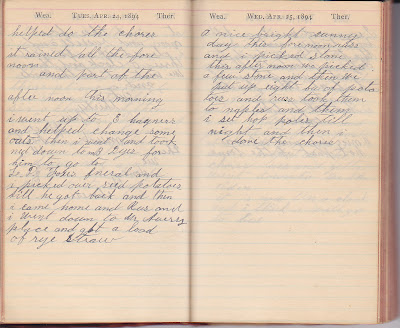 Wea. TUES. APR. 24, 1894 Ther.
helped do the chores
it rained all the fore
noon
and part of the
after noon this morning
i went up to E
and helped change some
outs then i went and took
out down to Eyes for
him to go to
funeral and
i picked over seed potatoes
till he got back and then
i came home and Gus and
i went down to
place and got a load
of rye straw
Wea. WED. APR. 25, 1894 Ther.
a nice bright sunny
day this fore noon
and i picked stone
this after noon we picked
a few stone and then we
put up eight bu of pota
toes and Gus took them
to naples and then
i set hop poles till
night and then i
done the chores